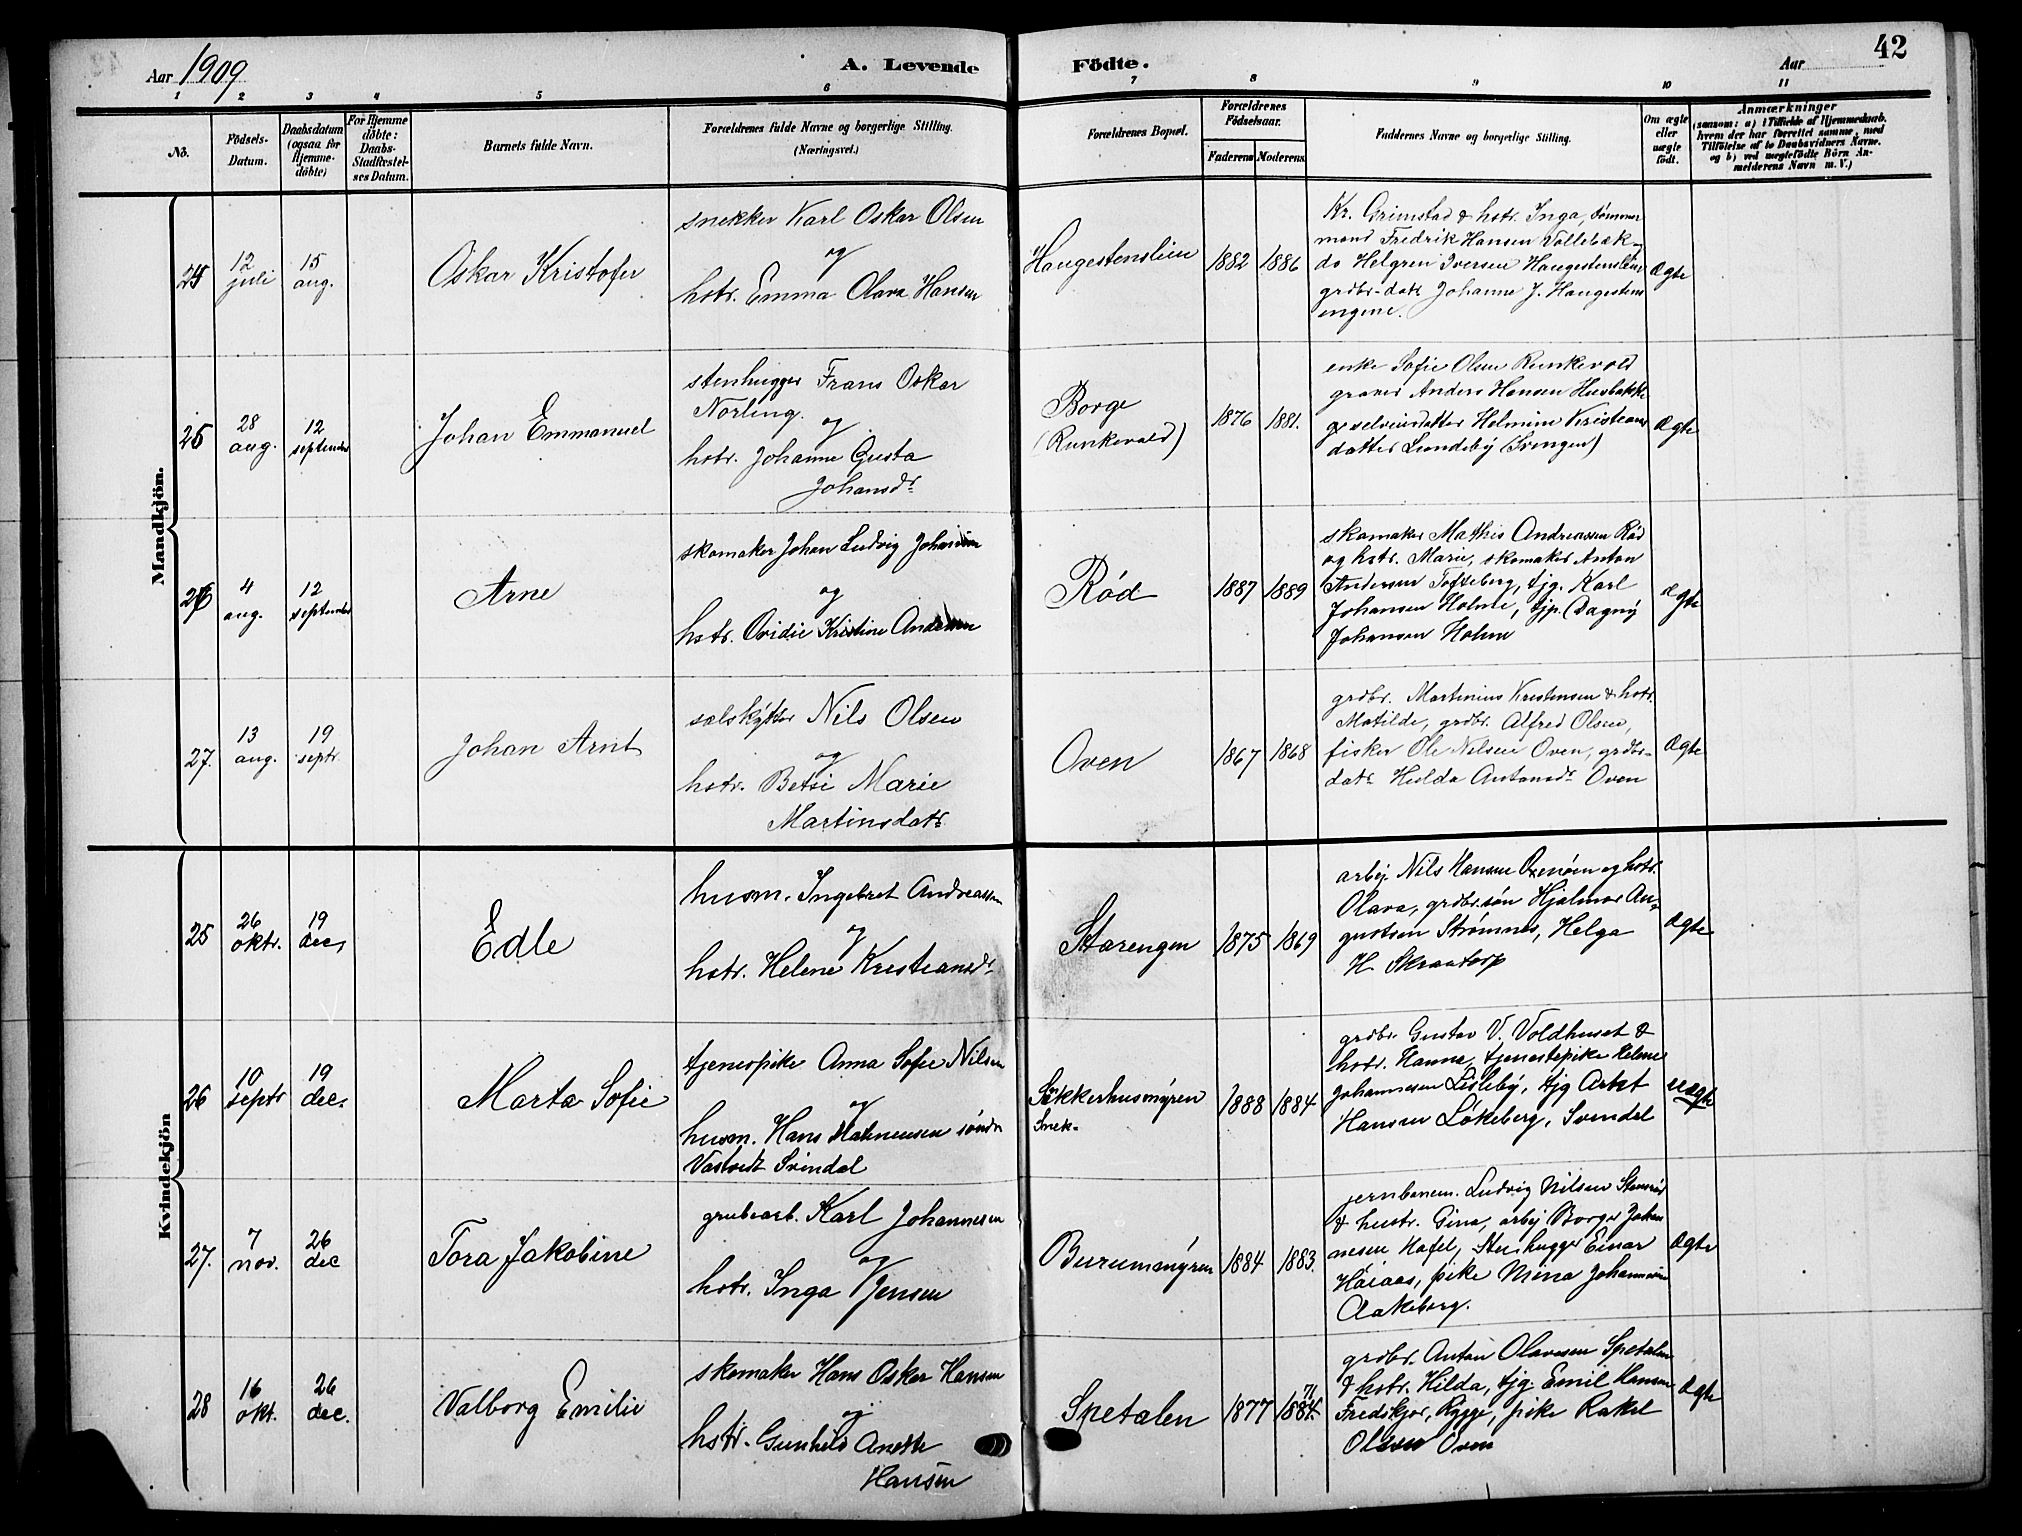 Aar 1909
A. Levende Födte.
Aar
42
1 2 3 4 5 6 7 8 9 10 11
No.
Födsels-
Datum.
Daabsdatum
(ogsaa for
Hjemme-
döbte)
For Hjemme
döbte:
Daabs-
Stadfæstel-
ses Datum.
Barnets fulde Navn.
Forældrenes fulde Navne og borgerlige Stilling.
(Næringsvei.)
Forældrenes Bopæl.
Forældrenes
Födselsaar.
Faderens Moderens
Faddernes Navne og borgerlige Stilling.
Om ægte
eller
uægte
födt.
Anmærkninger
(saasom: a) i Tilfælde af Hjemmedaab.
hvem der har forrettet samme, med
Tilföielse af to Daabsvidners Navne.
og b) ved uægtefödte Börn An-
melderens Navn m. V.)
Mandkjön.
25
12
juli
15
aug.
Oskar Kristofer
snekker Karl Oskar Olsen
og
hstr. Emma Olava Hansen
Haugestenslien
1882 1886
Kr. Grimstad & hstr. Inga, tømmer
mand Fredrik Hansen Vollebæk-
do Helgren Iversen Haugestenslien
grdbr-datr Johanne J. Haugestens
engene.
Ægte
26
28
aug.
12
september
Johan Emmanuel
stenhugger Frans Oskar
Norling.
og
hstr. Johanne Gusta
Johansdr
Borge
(Runkevold)
1876 1881.
enke Sofie Olsen Runkevold
graver Anders Hansen Husbakke
gr selveiersdatter Helmine Kristians
datter Lundeby (Svingen)
Ægte
26
4
aug.
12
september
Arne
skomaker Johan Ludvig Johansen
og
hstr. Ovidie Kristine Andersen
Rød
1887 1889
skomaker Mathis Andreassen Rød
og hstr. Marie, skomaker Anton
Andersen Tofteberg, tjg. Karl
Johansen Holme, tjp. Dagny
Johansen Holm
ægte
27.
13
aug.
19
septr.
Johan Arnt
sælskytter Nils Olsen
og
hstr. Betsi Marie
Martinsdatr
Oven
1867 1868
grdbr. Martinius Kristensen & hstr.
Matilde, grdbr. Alfred Olsen,
fisker Ole Nilsen Oven, grdbr-
datr Hulda Antonsdr Oven
Ægte
Kvindekjön
25
26
oktr.
19
dec,
Edle
husm. Ingebret Andreassen
og
hstr. Helene Kristiansdr
Starengen
1875 1869
arbej. Nils Hansen Oxenøen og hstr.
Olava, grdbr. søn Hjalmar Au-
gustsen Strømnes, Helga
H. Skraatorp
Ægte
26
10
septr
19
dec.
Marta Sofie
tjenespike Anna Sofie Nilsen
og
husm. Hans Matheusen søndr
Vastvedt Svindal
Sikkerhusmyren
Smek-
1888 1884
grdbr. Gustav V. Voldhuset &
hstr. Hanna, tjenestepike Helene
Johannesen Lisleby, tjg Artet
Hansen Løkeberg, Svendal
uægte
27.
7
nov.
26
dec
Tora Jakobine
grubearb. Karl Johannesen
og
hstr. Inga Jensen
Burummyren
1884 1883.
jernbanem. Ludvig Nilsen Stensrød
& hustr. Gina, arbej Borger Johan
nesen Hafel, Stenhugger Einar
Høiaas, pike Mina Johannesen
Aakeberg.
Ægte
28
16
okt.
26
dec.
Valborg Emilie
skomaker Hans Oskar Hansen
og
hstr. Gunhild Anette
Hansen
Spetalen
1877 1884. 71
grdbr. Anton Olavesen Spetalen
& hstr. Hilda, tjg Emil Hansen
Fredskjør, Rygge, pike Rakel
Olsen Oven
Ægte